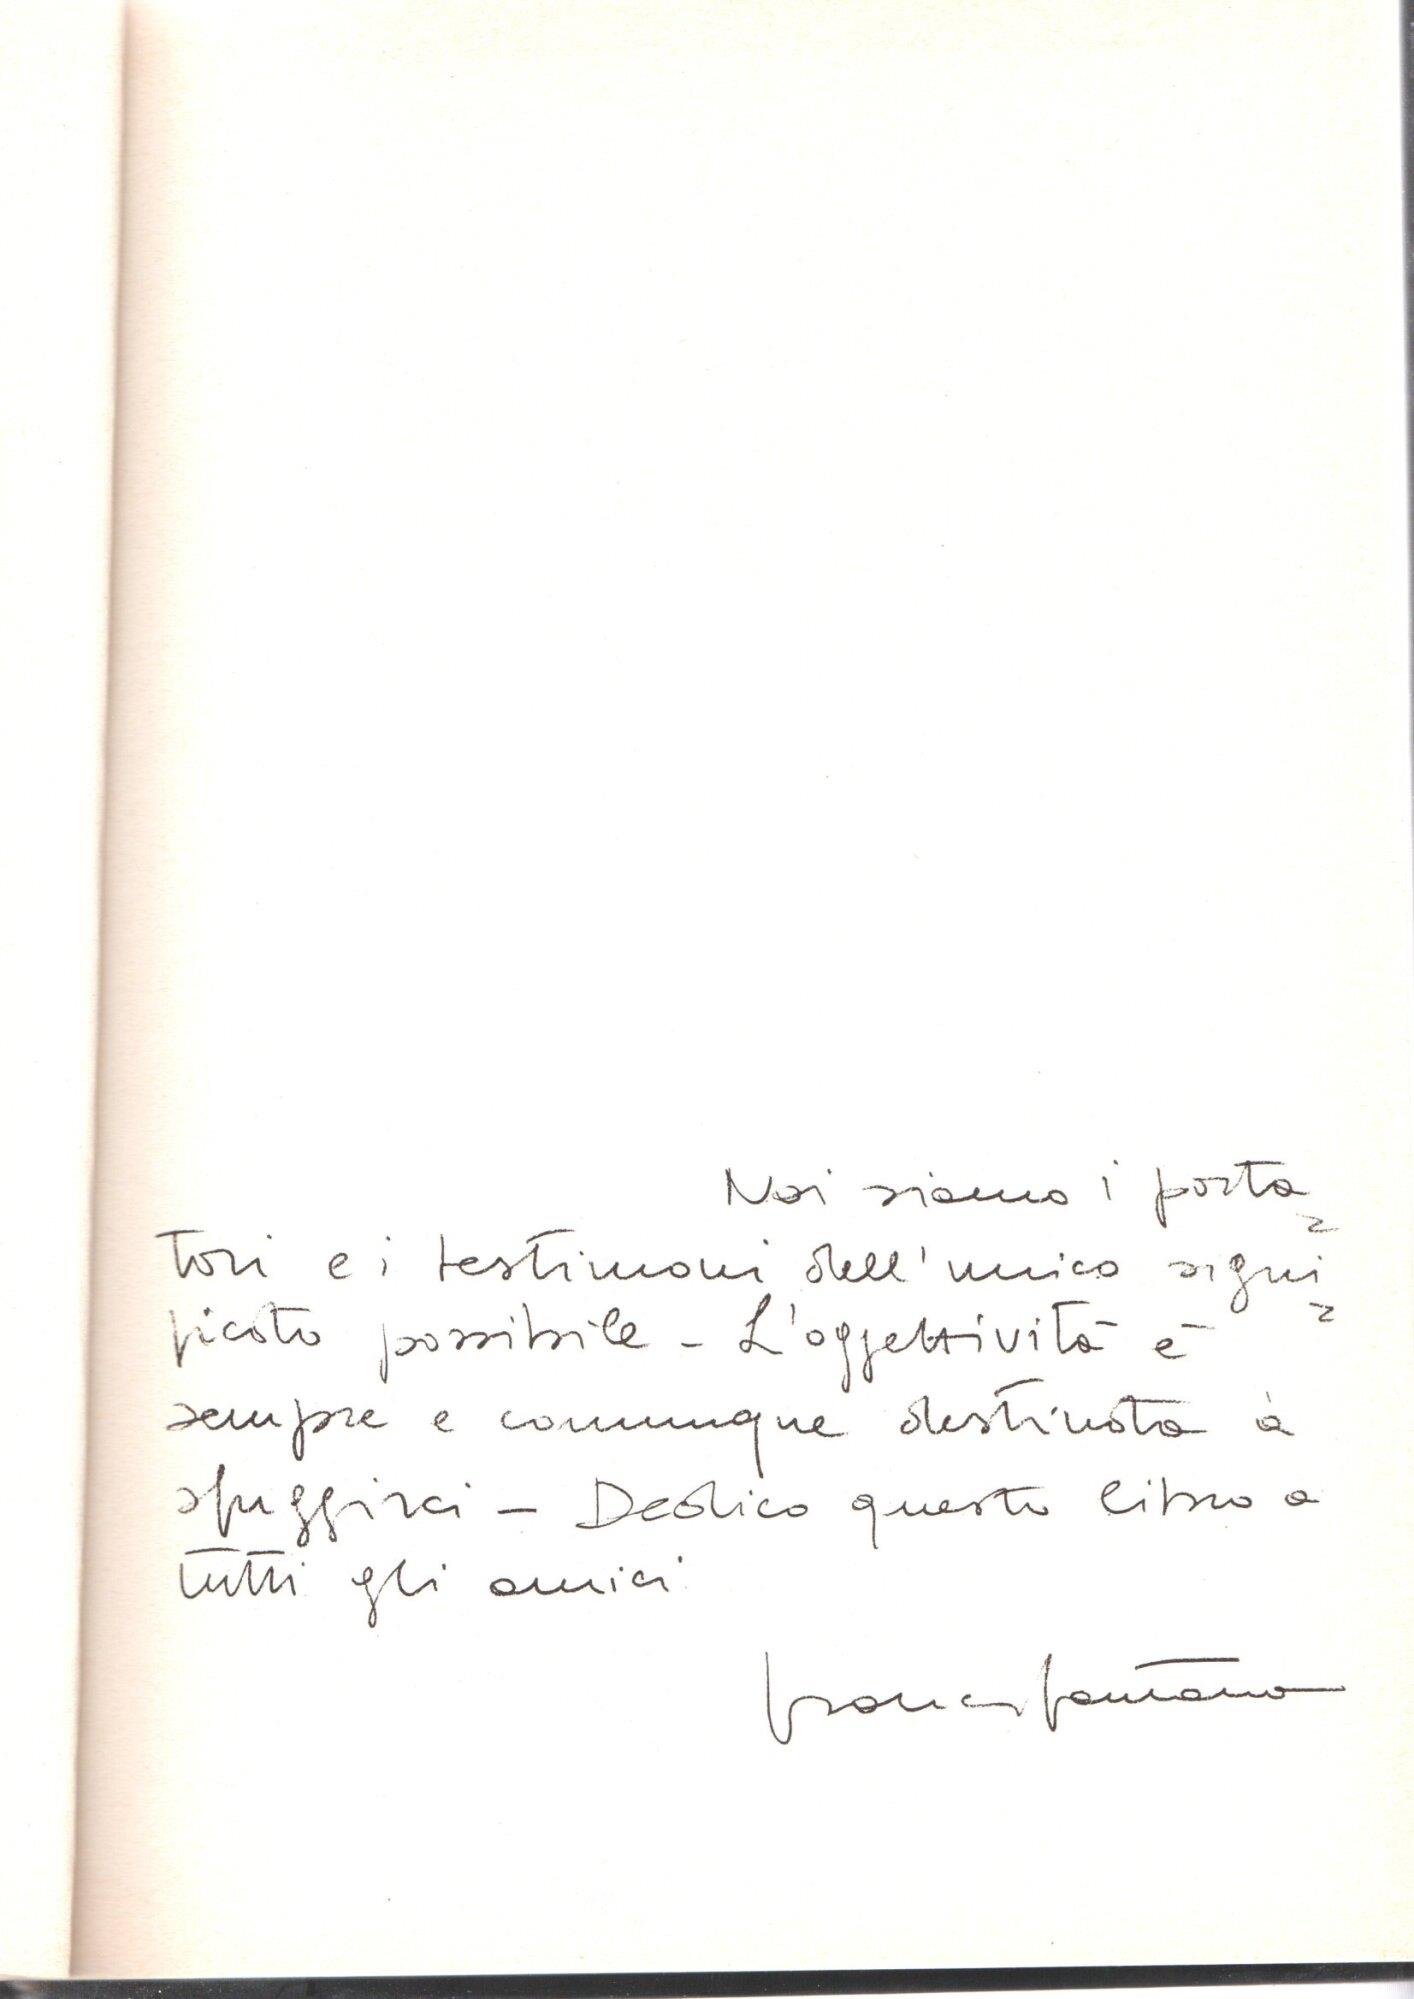 Noi siamo i porta=
tori e i testimoni dell'unico signi=
ficato possibile - L'oggettività è
sempre e comunque destinata à
sfuggirci - Dedico questo libro a
tutti gli amici
franco fontana